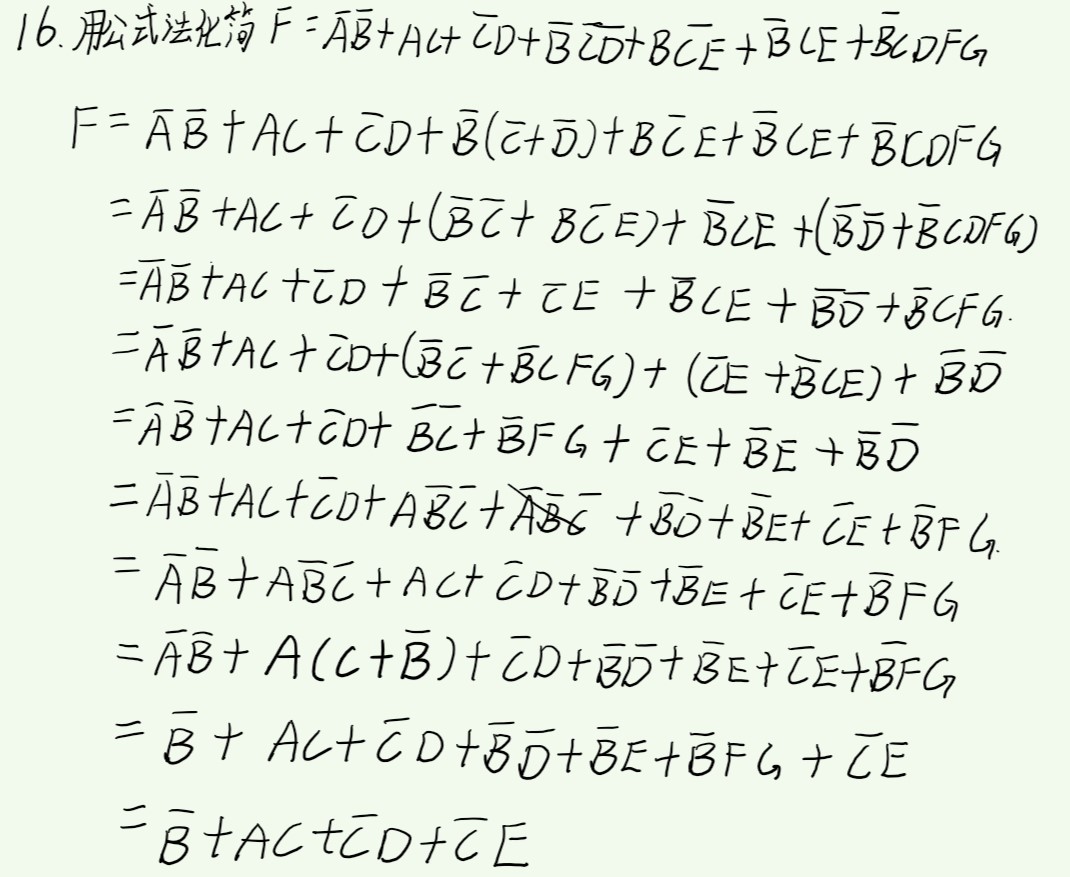 16. 用公式法化简 F = A̅B̅ + AC + C̅D + B̅C̅D̅ + BC̅E + B̅CE + B̅CDFG
F = A̅B̅ + AC + C̅D + B̅(C̅+D̅) + BC̅E + B̅CE + B̅CDFG
= A̅B̅ + AC + C̅D + (B̅C̅ + BC̅E) + B̅CE + (B̅D̅ + B̅CDFG)
= A̅B̅ + AC + C̅D + B̅C̅ + C̅E + B̅CE + B̅D̅ + B̅CFG.
= A̅B̅ + AC + C̅D + (B̅C̅ + B̅CFG) + (C̅E + B̅CE) + B̅D̅
= A̅B̅ + AC + C̅D + B̅C̅ + B̅FG + C̅E + B̅E + B̅D̅
= A̅B̅ + AC + C̅D + AB̅C̅ + A̅B̅C̅ + B̅D̅ + B̅E + C̅E + B̅FG.
= A̅B̅ + AB̅C̅ + AC + C̅D + B̅D̅ + B̅E + C̅E + B̅FG
= A̅B̅ + A(C+B̅) + C̅D + B̅D̅ + B̅E + C̅E + B̅FG
= B̅ + AC + C̅D + B̅D̅ + B̅E + B̅FG + C̅E
= B̅ + AC + C̅D + C̅E